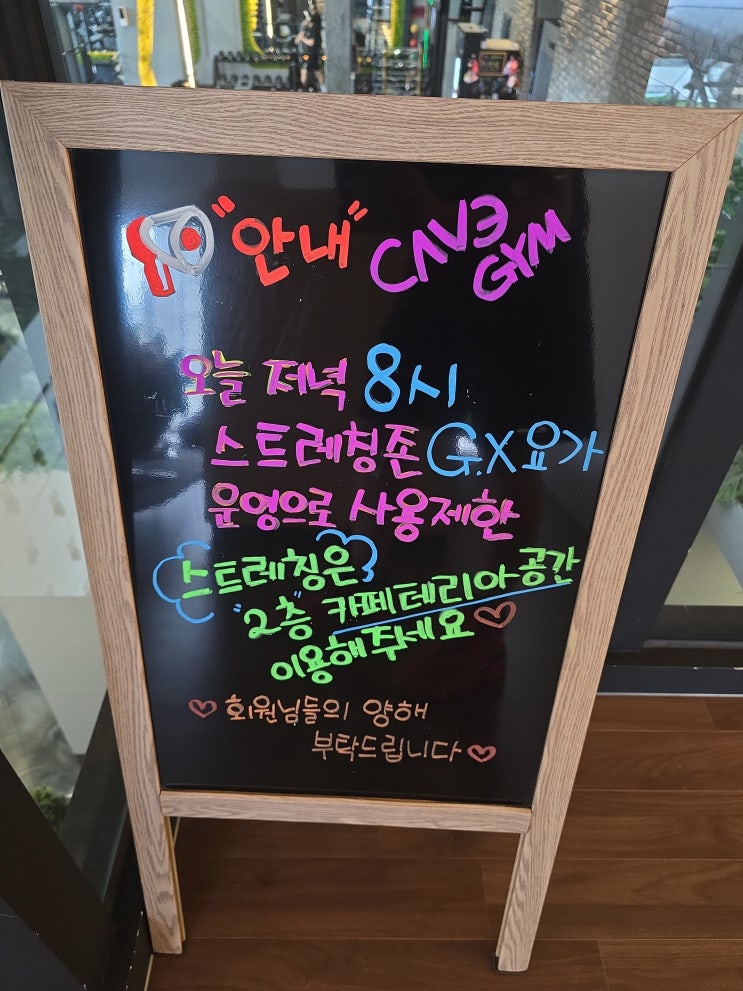 "안내" CAVE GYM
오늘 저녁 8시
스트레칭존 G.X 요가
운영으로 사용제한
스트레칭은
"2층" 카페테리아 공간
이용해주세요
회원님들의 양해
부탁드립니다